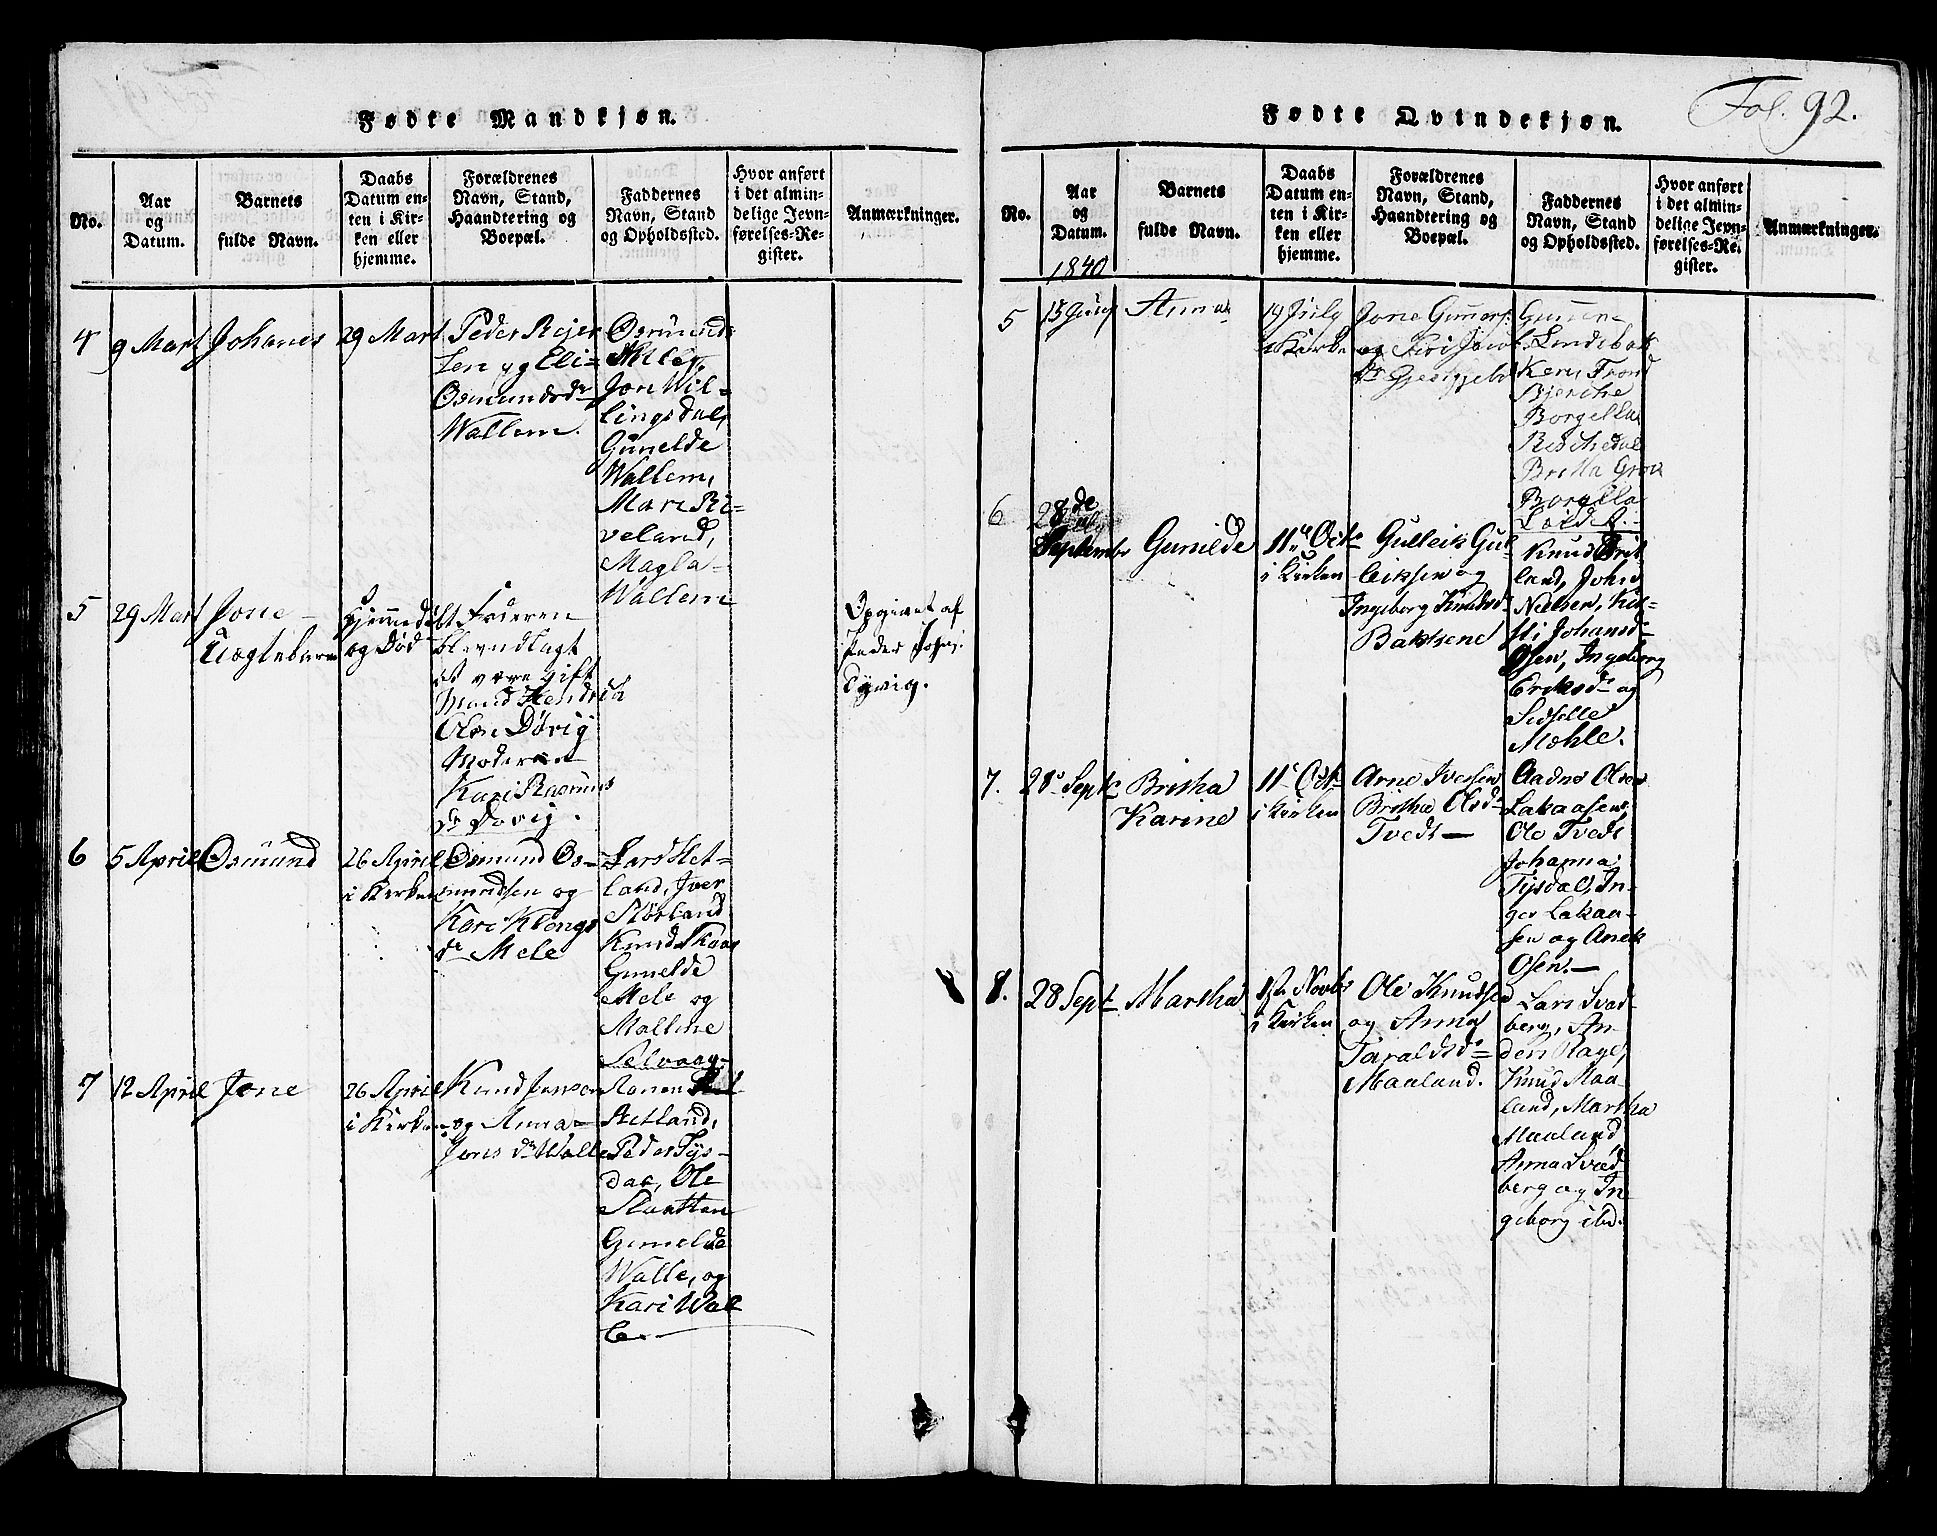 Fødte Mandkjøn.
No.
Aar
og
Datum.
Barnets
fulde Navn.
Daabs
Datum en-
ten i Kir-
ken eller
hjemme.
Forældrenes
Navn, Stand,
Haandtering og
Boepæl.
Faddernes
Navn, Stand
og Opholdssted.
Hvor anført
i det almin-
delige Jevn-
førelses-Re-
gister.
Anmærkninger.
4
9 Mart
Johanes
29 Mart
Peder Rejer
sen og Eli-
Osmundsdr
Wallem.
Osmund
Jon Wil-
lingsdal,
Gunelde
Wallem,
Mari Ri-
veland,
Magla
Wallem
5
29 Mart
Jone
Uægtebarn
Hjemmedøbt
og Død
Faderen
blev udlagt
at være gift
Mand Hendrik
Olsen Dövig
Moderen
Kari Rasmus
dr Dövig.
Opgivet af
Peder
6
5 April
Osmund
26 April
i Kirken
Osmund Os-
mundsen og
Kari Klengs
dr Mele
Lars Het-
land, Iver
Störland
Knud Skaar
Gunelde
Mele og
Mallene
Selvaag.
7
12 April
Jone
26 April
i Kirken
Knud Jonson
og Anna
Jons dr Walle
Hetland,
Peder Tys-
dal, Ole
Slaatten
Gunelda
Walle, og
Kari Wal
le.
Fødte Qvindekjøn.
Fol. 92.
No.
Aar
og
Datum.
Barnets
fulde Navn.
Daabs
Datum en-
ten i Kir-
ken eller
hjemme.
Forældrenes
Navn, Stand,
Haandtering og
Boepæl.
Faddernes
Navn, Stand
og Opholdssted.
Hvor anført
i det almin-
delige Jevn-
førelses-Re-
gister.
Anmærkninger.
1840
5
Anna
19 July
i Kirke
Jone Gunders.
og Siri Jacob
dr
Gunder
Trond
Bjerche
Borgella
Birthe
Borgella
6
28de
September
Gunilde
11te Octr
i Kirken
Gulleik Gul
leiksen og
Ingeborg Knudsdr
Baksene
Knud Brit
land, John
Nielsen, Kir-
sti Johansdr
Osen, Ingeborg
Eriksdr og
Sidselle
Mæhle.
7.
28 Septr
Britha
Karine
11te Octr
i Kirken
Arne Iversen
Britha Olsdr
Tvedt
Aadne Olsen
Lakaasen,
Ole Tvedt
Johanna
Tysdal, In-
ger Lakaa-
sen og Anek
Osen.
8.
28 Septr
Martha
1st Novbr
i Kirken
Ole Knudsen
og Anna
Taraldsdr
Maaland.
Lars Svad
berg, An-
ders Rage,
Knud Maa-
land, Martha
Maaland
Anna Svad
berg og In
geborg ibd.